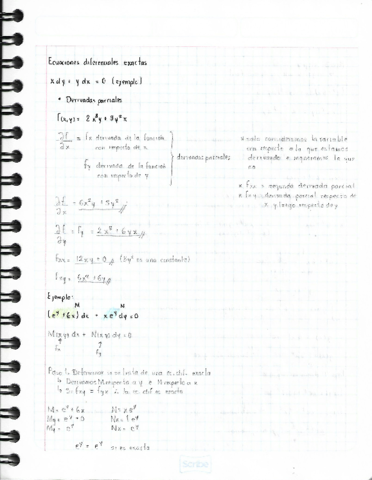 Ecuaciones diferenciales exactas
x dy = y dx = 0 (ejemplo)
• Derivadas parciales
f(x,y) = 2x³y + 3y²x
∂f/∂x = fx derivada de la función con respecto de x
fy derivada de la función con respecto de y
} derivadas parciales
solo consideramos la variable
con respecto a la que estamos
derivando e ignoramos la que
* Fxx = segunda derivada parcial
* Fxy = derivada parcial respecto de
x y luego respecto de y
∂f/∂x = 6x²y + 3y²
∂f/∂y = fy = 2x³ + 6yx
Fxx = 12xy + 0 (3y² es una constante)
Fxy = 6x² + 6y
Ejemplo:
M N
(e^y + 6x) dx + xe^y dy = 0
M(x,y) dx + N(x,y) dy = 0
fx fy
Paso 1. Determinar si se trata de una ec. dif. exacta
↳ Derivamos M respecto a y e N respecto a x
↳ Si fxy = fyx ∴ la ec. dif es exacta
M = e^y + 6x N = xe^y
My = e^y + 0 Nx = 1e^y
My = e^y Nx = e^y
e^y = e^y si es exacta
scribe